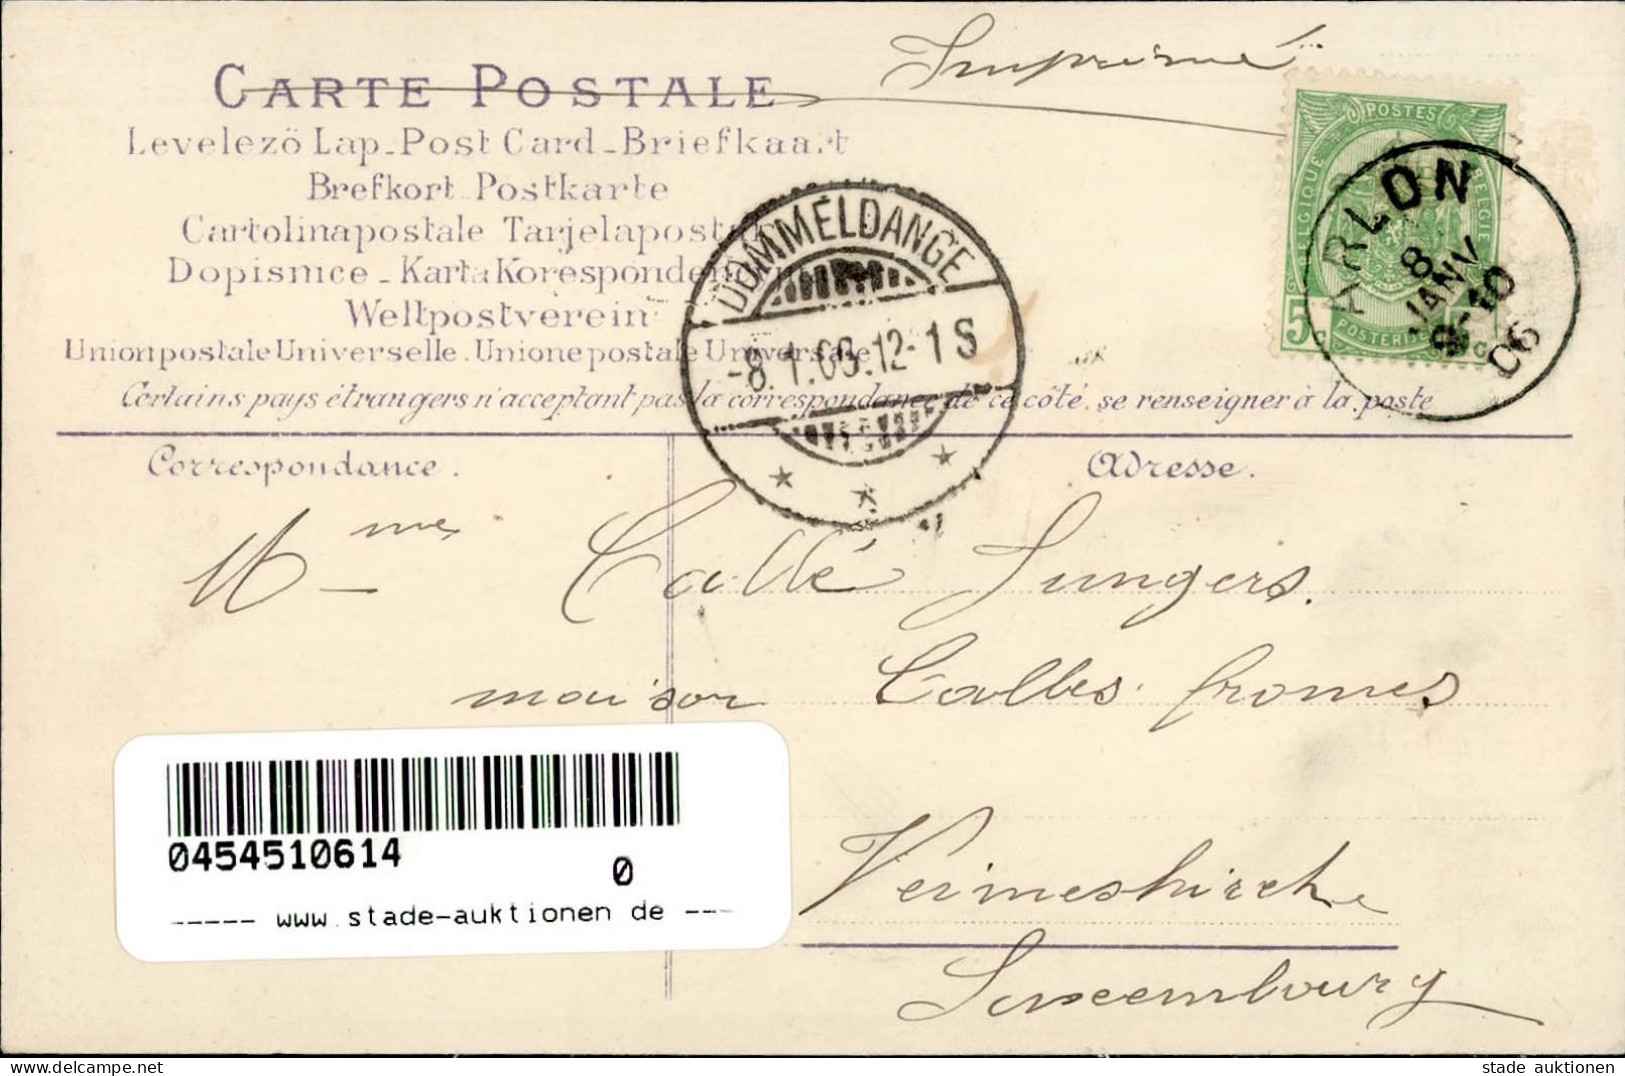 Imprimé
CARTE POSTALE
Levelezö Lap_Post Card_Briefkaart
Brefkort Postkarte
Cartolinapostale Tarjelapost
Dopisnice - Karta Korespondenc
Weltpostverein
Union postale Universelle. Unione postale Universale
Certains pays étrangers n'acceptant pas la correspondance de ce côté. se renseigner à la poste
POSTES
BELGIQUE BELGIE
5 C POSTERIJEN C
ARLON
8
JANV
9-10
06
DOMMELDANGE
-8.1.06.12-1 S
Correspondance.
Adresse.
Mme Callé Jungers.
maison Calles
Luxembourg
0454510614
0
----- www.stade-auktionen de ---
stade auktionen